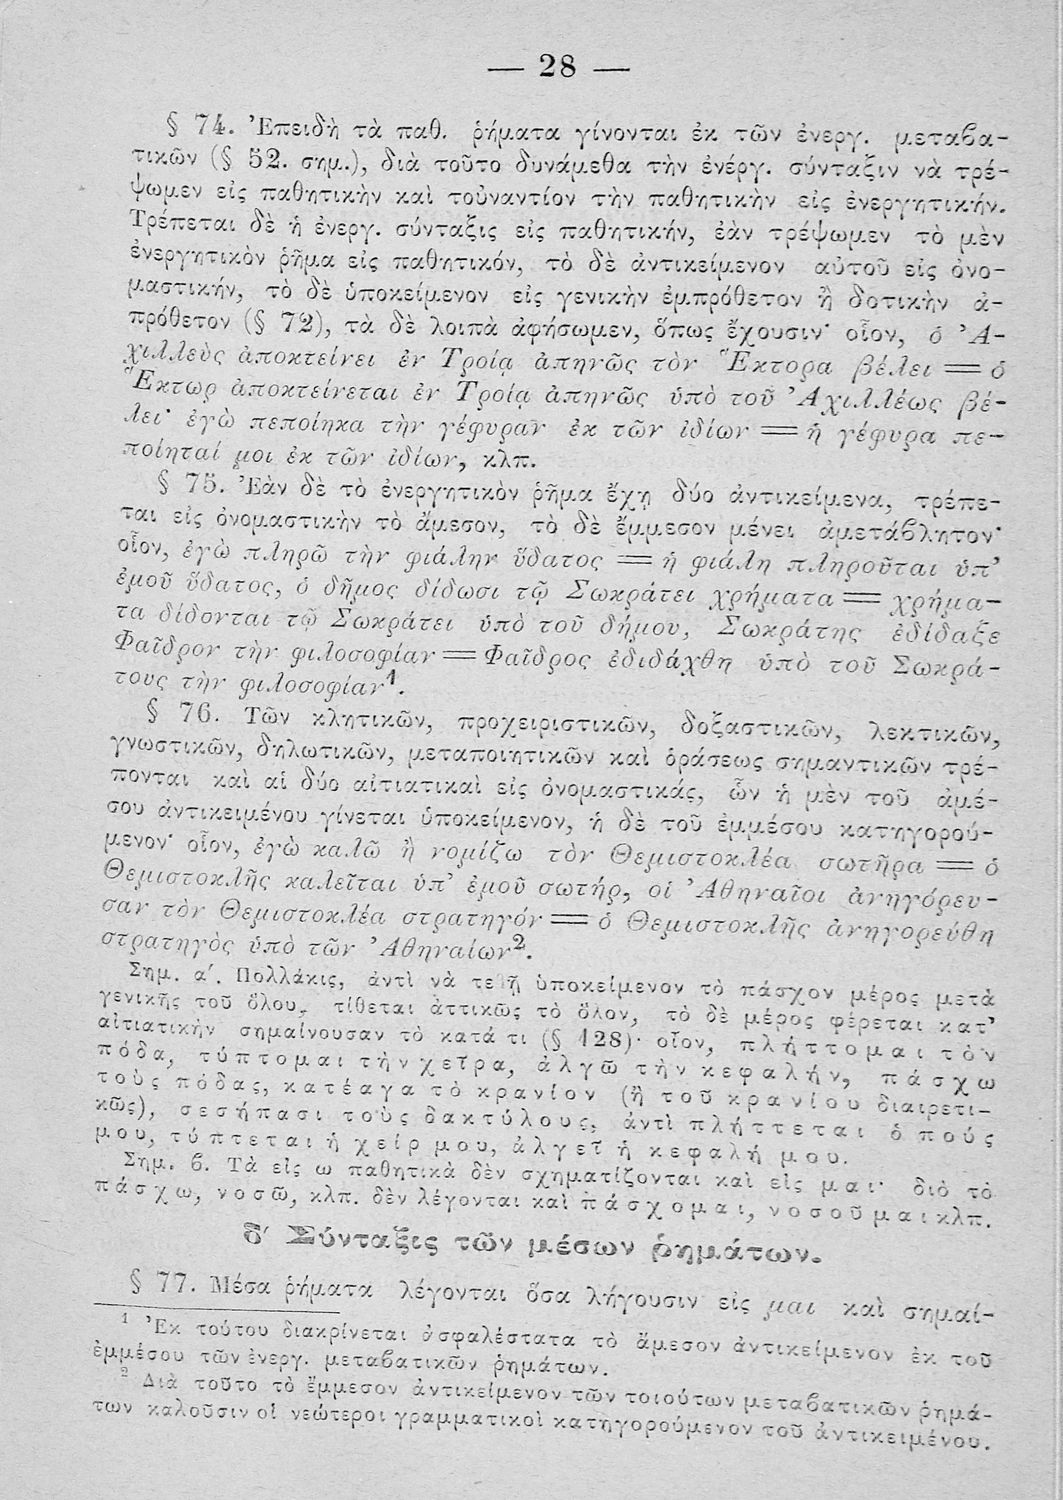 — 28 —
§ 74. Ἐπειδὴ τὰ παθ. ῥήματα γίνονται ἐκ τῶν ἐνεργ. μεταβα-
τικῶν (§ 52. σημ.), διὰ τοῦτο δυνάμεθα τὴν ἐνέργ. σύνταξιν νὰ τρέ-
ψωμεν εἰς παθητικὴν καὶ τοὐναντίον τὴν παθητικὴν εἰς ἐνεργητικήν.
Τρέπεται δὲ ἡ ἐνεργ. σύνταξις εἰς παθητικήν, ἐὰν τρέψωμεν τὸ μὲν
ἐνεργητικὸν ῥῆμα εἰς παθητικόν, τὸ δὲ ἀντικείμενον αὐτοῦ εἰς ὀνο-
μαστικήν, τὸ δὲ ὑποκείμενον εἰς γενικὴν ἐμπρόθετον ἢ δοτικὴν ἀ-
πρόθετον (§ 72), τὰ δὲ λοιπὰ ἀφήσωμεν, ὅπως ἔχουσιν· οἷον, ὁ Ἀ-
χιλλεὺς ἀποκτείνει ἐν Τροίᾳ ἀπηνῶς τὸν Ἕκτορα βέλει = ὁ
Ἕκτωρ ἀποκτείνεται ἐν Τροίᾳ ἀπηνῶς ὑπὸ τοῦ Ἀχιλλέως βέ-
λει· ἐγὼ πεποίηκα τὴν γέφυραν ἐκ τῶν ἰδίων = ἡ γέφυρα πε-
ποίηταί μοι ἐκ τῶν ἰδίων, κλπ.
§ 75. Ἐὰν δὲ τὸ ἐνεργητικὸν ῥῆμα ἔχῃ δύο ἀντικείμενα, τρέπε-
ται εἰς ὀνομαστικὴν τὸ ἄμεσον, τὸ δὲ ἔμμεσον μένει ἀμετάβλητον·
οἷον, ἐγὼ πληρῶ τὴν φιάλην ὕδατος = ἡ φιάλη πληροῦται ὑπ'
ἐμοῦ ὕδατος, ὁ δῆμος δίδωσι τῷ Σωκράτει χρήματα = χρήμα-
τα δίδονται τῷ Σωκράτει ὑπὸ τοῦ δήμου, Σωκράτης ἐδίδαξε
Φαῖδρον τὴν φιλοσοφίαν = Φαῖδρος ἐδιδάχθη ὑπὸ τοῦ Σωκρά-
τους τὴν φιλοσοφίαν¹.
§ 76. Τῶν κλητικῶν, προχειριστικῶν, δοξαστικῶν, λεκτικῶν,
γνωστικῶν, δηλωτικῶν, μεταποιητικῶν καὶ ὁράσεως σημαντικῶν τρέ-
πονται καὶ αἱ δύο αἰτιατικαὶ εἰς ὀνομαστικάς, ὧν ἡ μὲν τοῦ ἀμέ-
σου ἀντικειμένου γίνεται ὑποκείμενον, ἡ δὲ τοῦ ἐμμέσου κατηγορού-
μενον· οἷον, ἐγὼ καλῶ ἢ νομίζω τὸν Θεμιστοκλέα σωτῆρα = ὁ
Θεμιστοκλῆς καλεῖται ὑπ' ἐμοῦ σωτήρ, οἱ Ἀθηναῖοι ἀνηγόρευ-
σαν τὸν Θεμιστοκλέα στρατηγόν = ὁ Θεμιστοκλῆς ἀνηγορεύθη
στρατηγὸς ὑπὸ τῶν Ἀθηναίων².
Σημ. α'. Πολλάκις, ἀντὶ νὰ τεθῇ ὑποκείμενον τὸ πάσχον μέρος μετὰ
γενικῆς τοῦ ὅλου, τίθεται ἀττικῶς τὸ ὅλον, τὸ δὲ μέρος φέρεται κατ'
αἰτιατικὴν σημαίνουσαν τὸ κατά τι (§ 128)· οἷον, πλήττομαι τὸν
πόδα, τύπτομαι τὴν χεῖρα, ἀλγῶ τὴν κεφαλήν, πάσχω
τοὺς πόδας, κατέαγα τὸ κρανίον (ἢ τοῦ κρανίου διαιρετι-
κῶς), σεσήπασι τοὺς δακτύλους, ἀντὶ πλήττεται ὁ πούς
μου, τύπτεται ἡ χείρ μου, ἀλγεῖ ἡ κεφαλή μου.
Σημ. β. Τὰ εἰς ω παθητικὰ δὲν σχηματίζονται καὶ εἰς μαι· διὸ τὸ
πάσχω, νοσῶ, κλπ. δὲν λέγονται καὶ πάσχομαι, νοσοῦμαι κλπ.
δ' Σύνταξις τῶν μέσων ῥημάτων.
§ 77. Μέσα ῥήματα λέγονται ὅσα λήγουσιν εἰς μαι καὶ σημαί-
1 Ἐκ τούτου διακρίνεται ἀσφαλέστατα τὸ ἄμεσον ἀντικείμενον ἐκ τοῦ
ἐμμέσου τῶν ἐνεργ. μεταβατικῶν ῥημάτων.
2 Διὰ τοῦτο τὸ ἔμμεσον ἀντικείμενον τῶν τοιούτων μεταβατικῶν ῥημά-
των καλοῦσιν οἱ νεώτεροι γραμματικοὶ κατηγορούμενον τοῦ ἀντικειμένου.